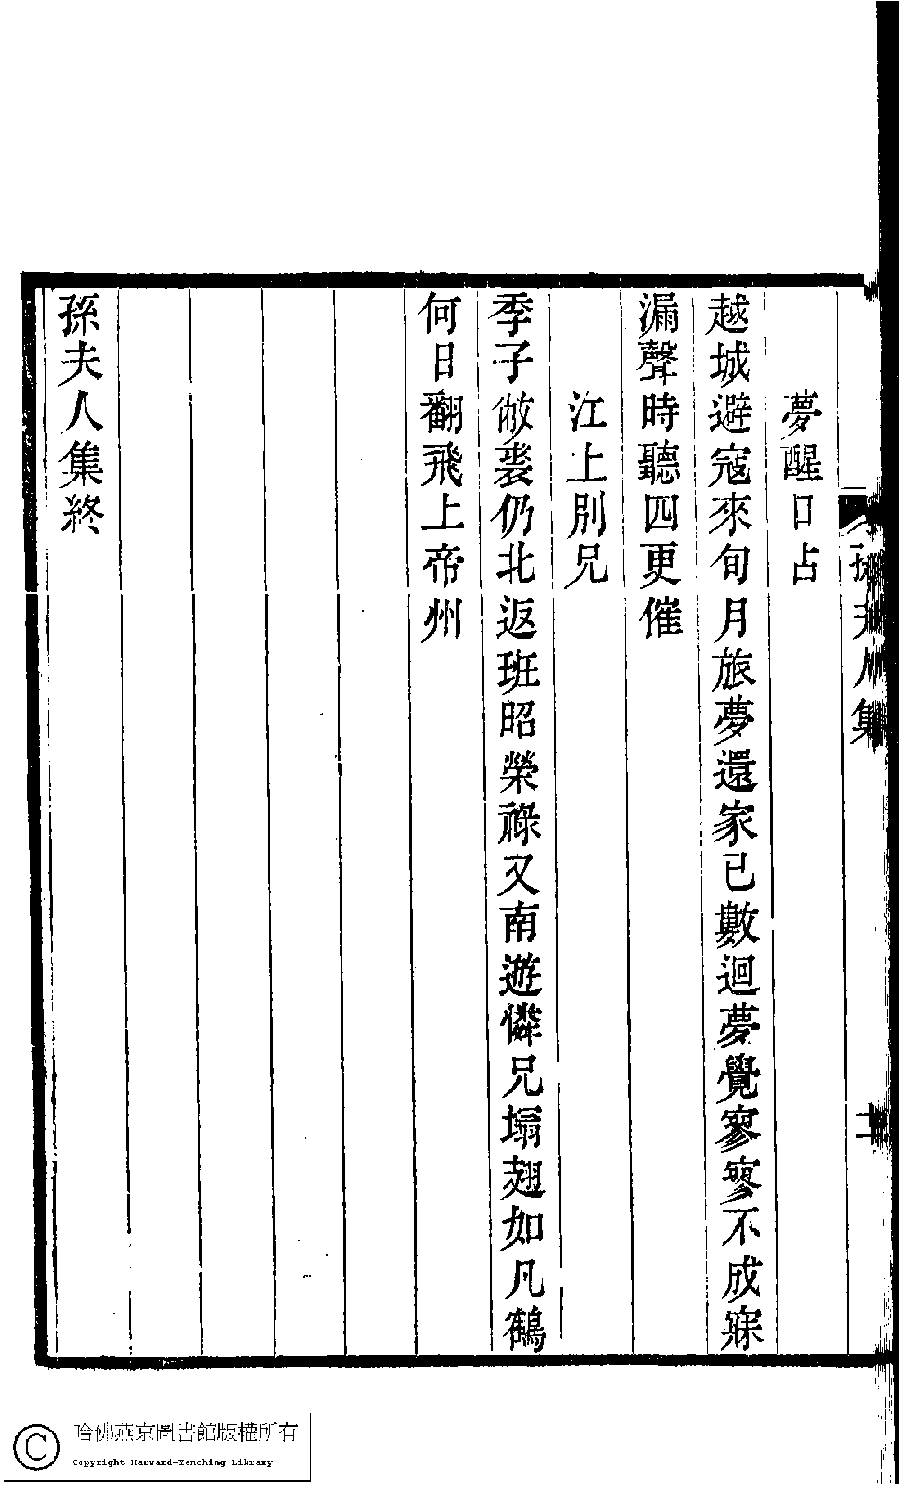 孫夫人集
十
夢醒口占
越城避寇來旬月旅夢還家已數迴夢覺寥寥不成寐
漏聲時聽四更催
江上別兄
季子敝裘仍北返班昭榮祿又南遊憐兄塌翅如凡鶴
何日翻飛上帝州
孫夫人集終
哈佛燕京圖書館版權所有
Copyright Harvard-Yenching Library